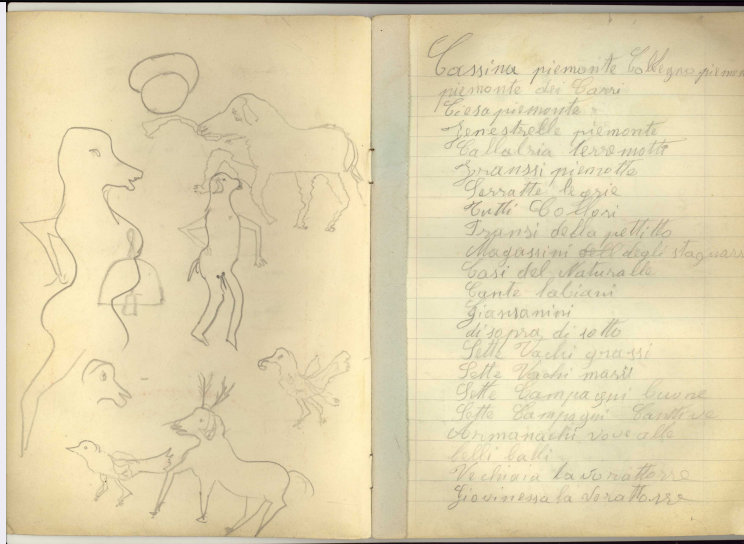 Cassina piemonte Collegno piemon
piemonte dei Carri
Ciesa piemonte
Fenestrelle piemonte
Callabria terremotti
Franssi piemotte
Serratte le
Tutti Collori
Fransi della pettitto
Magassini degli stagnari
Casi del Naturalle
Conte labiani
Giansanini
di sopra di sotto
Sette Vachi grassi
Sette Vachi
Sette Campagni buone
Sette Campagni Cattive
Armanachi
belli balli
Vechiaia
Giovinessa